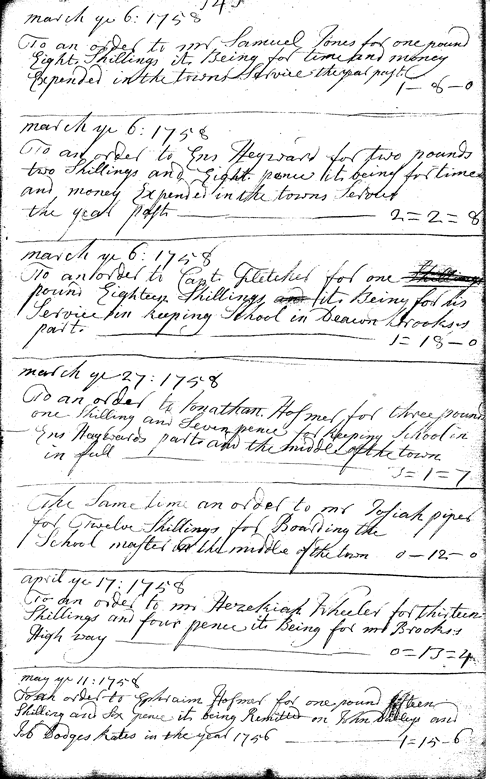 145
march ye 6: 1758
To an order to mr Samuel Jones for one pound
Eight Shillings its Being for time and money
Expended in the towns Service the year past
1-8-0
march ye 6: 1758
To an order to Ens Heyward for two pounds
two Shillings and Eight pence its being for time
and money Expended in the towns Servies
the year past 2=2=8
march ye 6: 1758
To an order to Capt Fletcher for one
pound Eighteen Shillings its Being for his
Service in keeping School in Deacon Brooks's
part 1=18-0
march ye 27: 1758
To an order to Jonathan Hosmer for three pound
one Shilling and Seven pence for keeping School in
Ens Haywards part and the middle of the town
in full 3=1=7
The Same time an order to mr Josiah piper
for Twelve Shillings for Boarding the
School master in the middle of the town 0-12-0
april ye 17: 1758
To an order to mr Hezekiah Wheeler for thirteen
Shillings and four pence its Being for mr Brooks's
High way 0=13=4
may ye 11: 1758
To an order to Ephraim Hosmer for one pound fifteen
Shilling and Six pence its being Remitted on John and
Job Dodges Rates in the year 1756 1=15-6